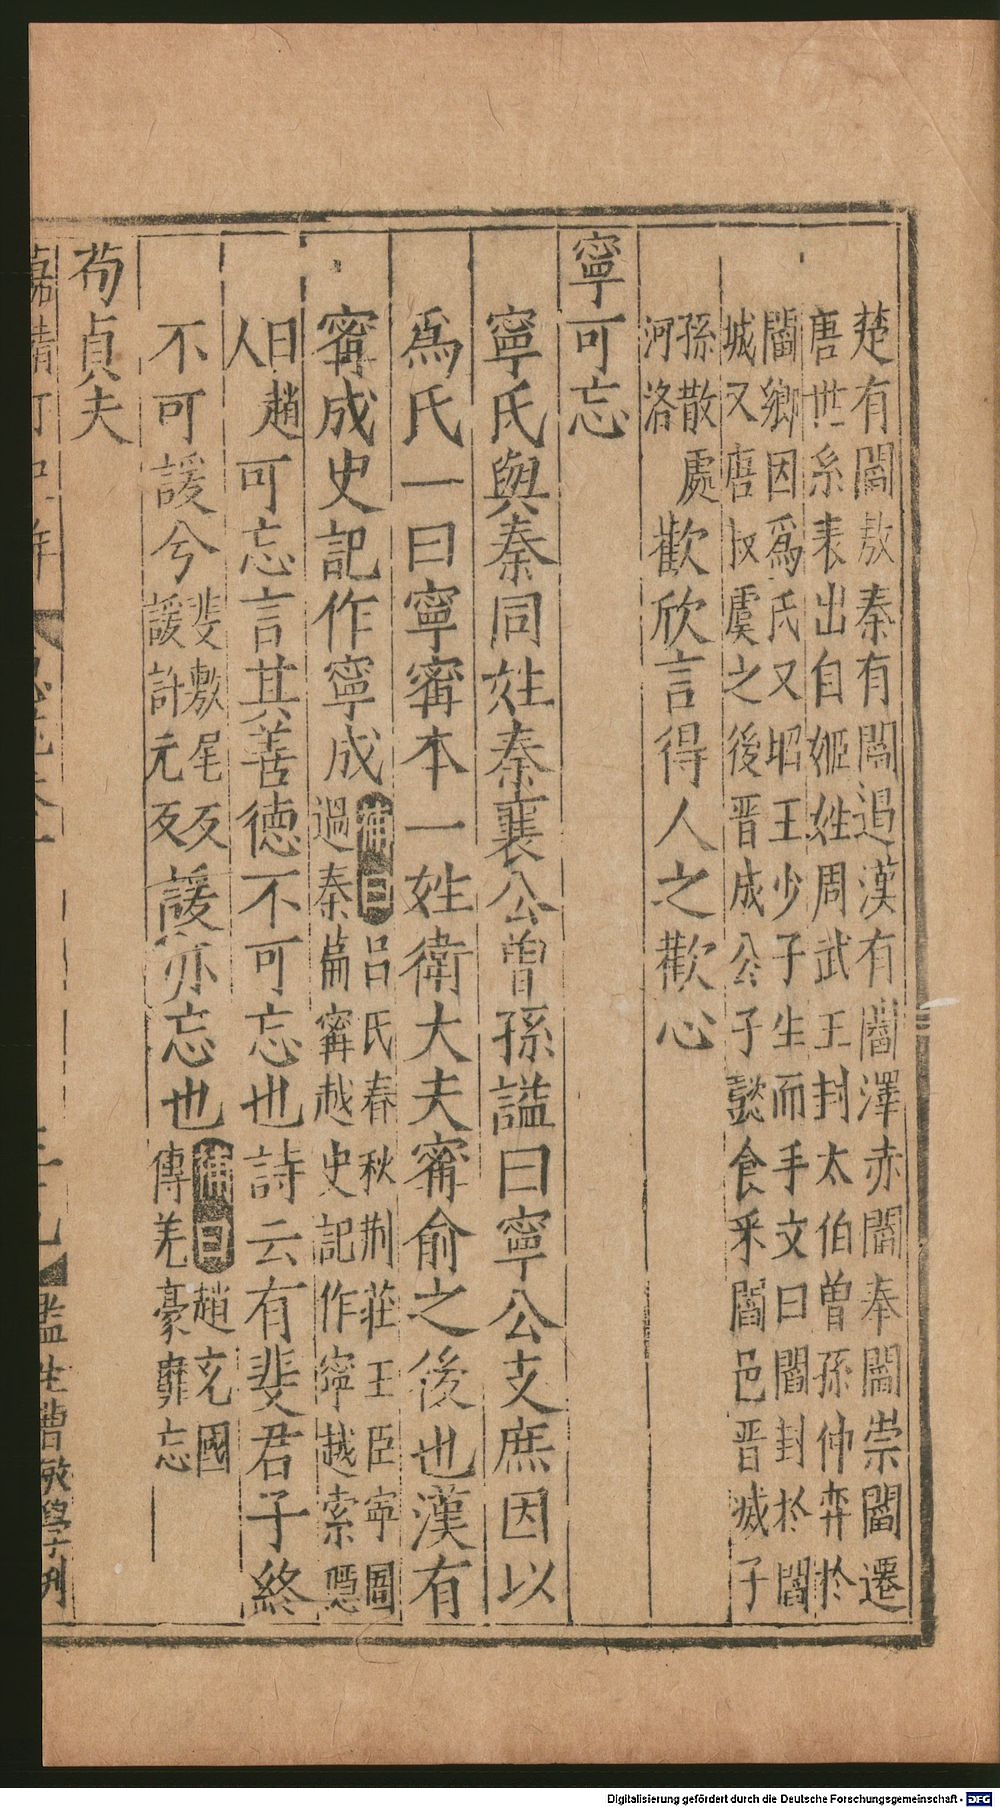 楚有閻敖秦有閻遏漢有閻澤赤閻奉閻崇閻遷
唐世系表出自姬姓周武王封太伯曾孫仲弈於
閻鄉因爲氏又昭王少子生而手文曰閻封於閻
城又唐叔虞之後晋成公子懿食釆閻邑晋滅子
孫散處
河洛
歡欣言得人之歡心
寧可忘
寧氏與秦同姓秦襄公曾孫謚曰寧公支庶因以
爲氏一曰寧甯本一姓衛大夫甯俞之後也漢有
甯成史記作寧成
補曰呂氏春秋荆莊王臣甯圄
過秦篇甯越史記作寧越索隱
曰趙
人
可忘言其善德不可忘也詩云有斐君子終
不可諼兮
斐敷尾反
諼許元反
諼亦忘也
補曰趙充國
傳羌豪靡忘
茍貞夫
監生曹敏學刋
Digitalisierung gefördert durch die Deutsche Forschungsgemeinschaft - DFG